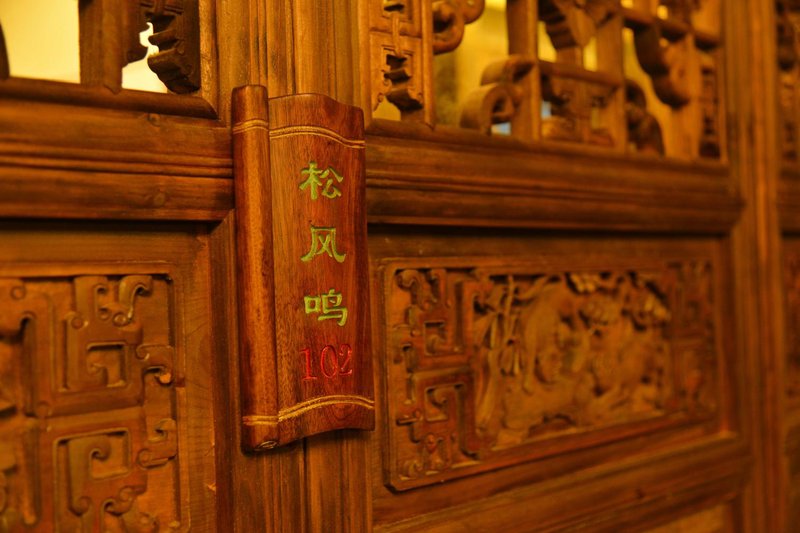 松风鸣
102